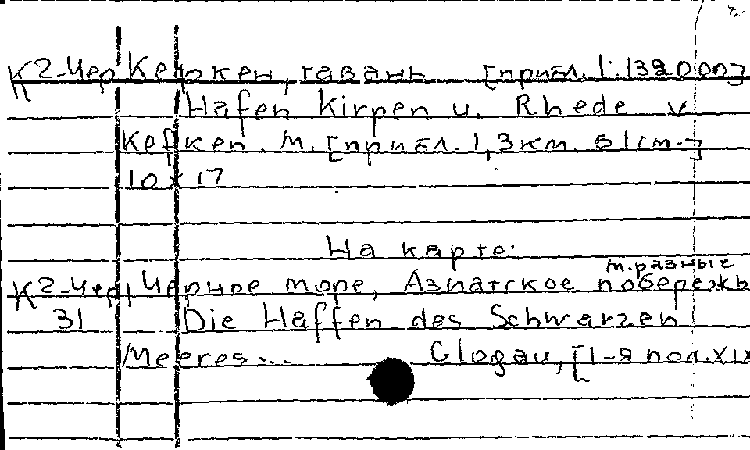 К2-Чер Керокен, гавань [прибл. 1:132000]
Hafen Kirpen u. Rhede v
Kefken. М. [прибл. 1,3км. в 1см.]
10 x 17
На карте:
м. разные
К2-Чер, Черное море, Азиатское побережь
31 Die Haffen des Schwarzen
Meeres... Glogau, [1-я пол. XIX